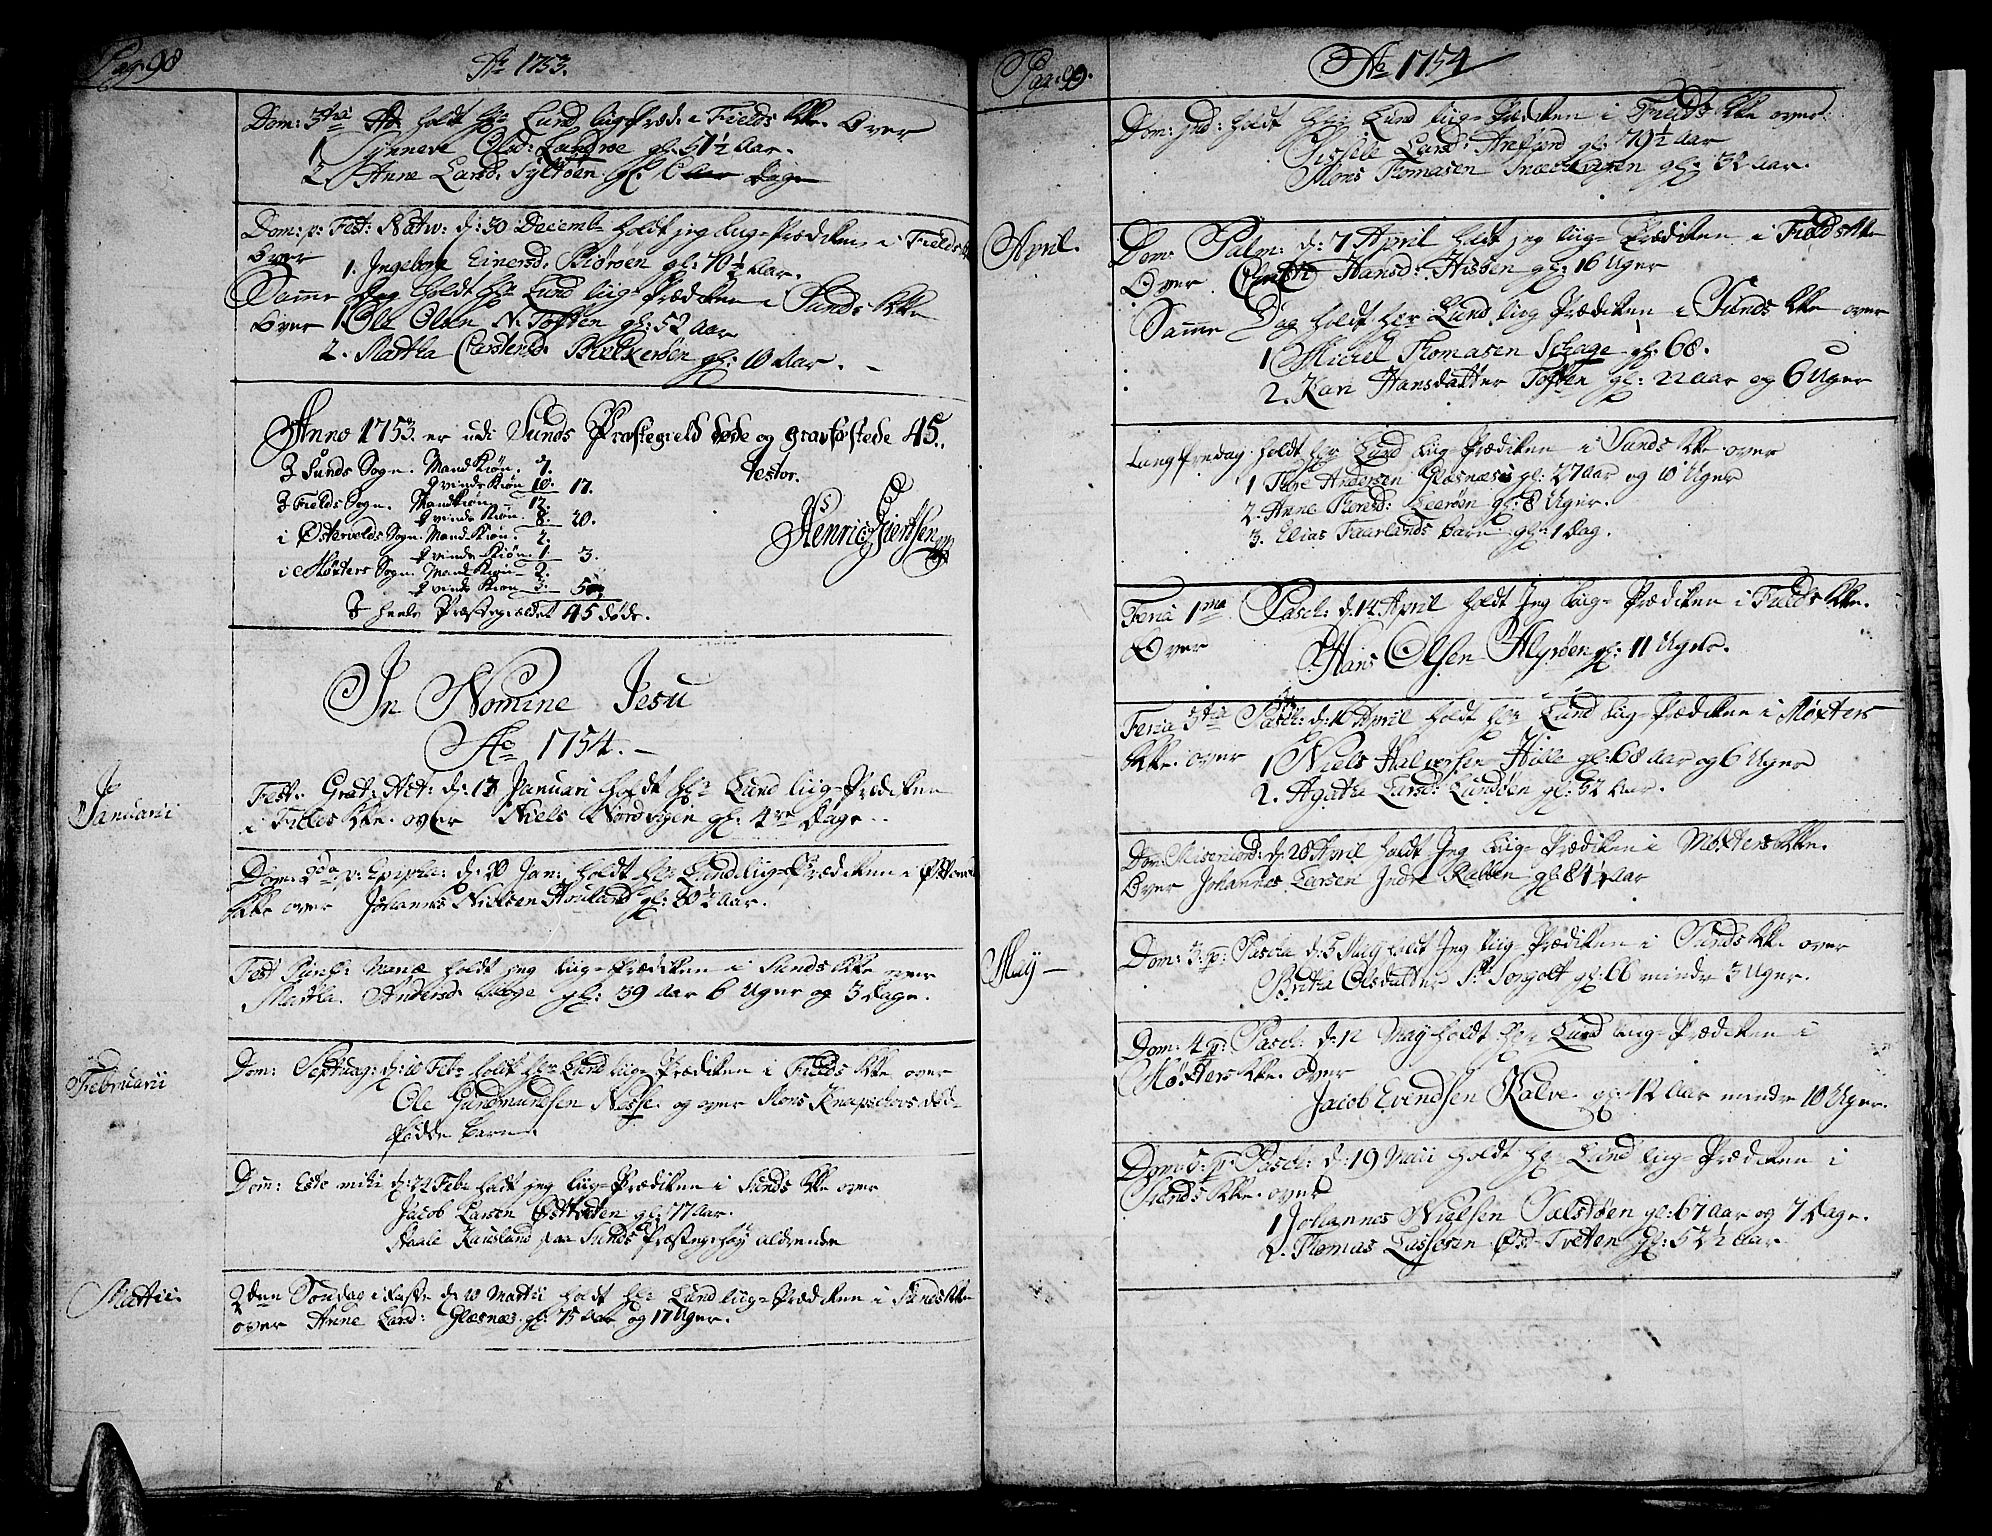 Pag: 98
Ao 1753.
Dom: 3tia Ad: holdt hr Lund liig-Præd: i Fields Kke. Over
1 Synneve Olsd: Landøe gl: 57½ Aar.
2. Anne Larsd. Syltøen gl: 6 Dage
Dom: p: Fest: Nativ: d: 30 Decemb: holdt jeg liig-Prædiken i Fields Kke
Over
1. Ingebor Einersd. Biørøen gl: 70½ Aar.
Samme Dag holdt hr Lund liig-Prædiken i Sunds Kke
Over 1 Ole Olsen N. Toften gl: 52 Aar
2. Martha Carstensd. Birkkerøen gl: 10 Aar. -
Anno 1753. er udi Sunds Præstegield døde og gravfæstede 45.
I Sunds Sogn. Mand Kiøn. 7.
Qvinde Kiøn. 10. 17.
I Fields Sogn. Mandkiøn. 12.
Qvinde Kiøn. 8. 20.
i Østervolds Sogn. Mand Kiøn. 2.
Qvinde Kiøn. 1 3.
i Møxters Sogn. Mand Kiøn 2.
Qvinde Kiøn 3. 5
I heele Præstegieldet 45 døde.
Testor.
Henric Giertsen
In Nomine Jesu
Ao 1754. -
Januarii
Fest: Grat: Act: d: 13 Januari holdt hr Lund liig-Prædiken
i Fields Kke. over Niels Nordvigen gl: 4re Dage.
Dom: 2da p: Epipha: d: 20 Jan: holdt hr Lund liig-Prædiken i
Kke over Johannes Nielsen Houland gl: 80½ Aar.
Fest Purif: Mariæ holdt jeg liig-Prædiken i Sunds Kke over
Martha Andersd. gl: 39 Aar 6 Uger og 3 Dage.
Februarii
Dom: Septuag: d: 10 Febr holdt hr Lund liig-Prædiken i Fields Kke over
Ole Gundmundsen Nesse og over Mons Knapschovs død-
fødde barn.
Dom: Esto mihi d: 24 Febr holdt jeg liig-Prædiken i Sunds Kke over
Jacob Larsen gl: 77 Aar.
Raale Kausland paa Sunds Præstegr: høy aldrende
Martii
2den Søndag i Faste d. 10 Martii holdt hr Lund liig-Prædiken i Sunds Kke
over Anne Larsd: Glæsnæs gl: 75 Aar og 17 Uger.
Pag: 99.
Ao 1754
Dom: Jud: holdt hr Lund liig-Prædiken i Fields Kke over:
Sissele Larsd: Arefiord gl: 79½ Aar
Mons Thomasen Snæckevigen gl: 32 Aar.
April.
Dom: Palm: d: 7 April holdt jeg liig-Prædiken i Fields Kke
Over Hansd: Hisøen gl: 16 Uger
Samme Dag holdt hr Lund liig Prædiken i Sunds Kke over
1 Michel Thomasen Schage gl: 68.
2. Kari Hansdatter Toften gl: 22 Aar og 6 Uger
Langfredag holdt hr Lund liig Prædiken i Sunds Kke over
1 Andersen Glæsnæs gl: 27 Aar og 10 Uger
2. Anne Leerøen gl: 8 Uger.
3. Elias Faarlands barn gl: 1 Dag.
Feria 1ma Pasch: d. 14 April holdt Jeg liig-Prædiken i Fields Kke.
Over
Hans Olsen Algrøen gl: 11 Uger.
Feria 3tia Pasch: d: 16 April holdt hr Lund liig-Prædiken i Møxters
Kke. over 1 Niels Halvorsen Hille gl: 68 Aar og 6 Uger
2. Agatha Larsd: Lundøen gl: 32 Aar.
Dom: Misericord: d: 28 April holdt Jeg liig-Prædiken i Møxters Kke.
Over Johannes Larsen Indre Kalven gl: 84½ Aar
May -
Dom: 3: p: Pascha d: 5 May holdt Jeg liig Prædiken i Sunds Kke over
Britha Olsdatter St Songolt gl: 66 mindre 3 Uger.
Dom: 4 p: Pasch: d: 12 May holdt hr Lund liig-Prædiken i
Møxters Kke. over
Jacob Evendsen Kalve gl: 42 Aar mindre 10 Uger.
Dom: 5: p: Pasch: d: 19 Maii holdt hr Lund liig-Prædiken i
Sunds Kke. over
1 Johannes Nielsen Selstøen gl: 67 Aar og 7 Dage.
2. Thomas Lassesen Øst Tveten gl: 52½ Aar